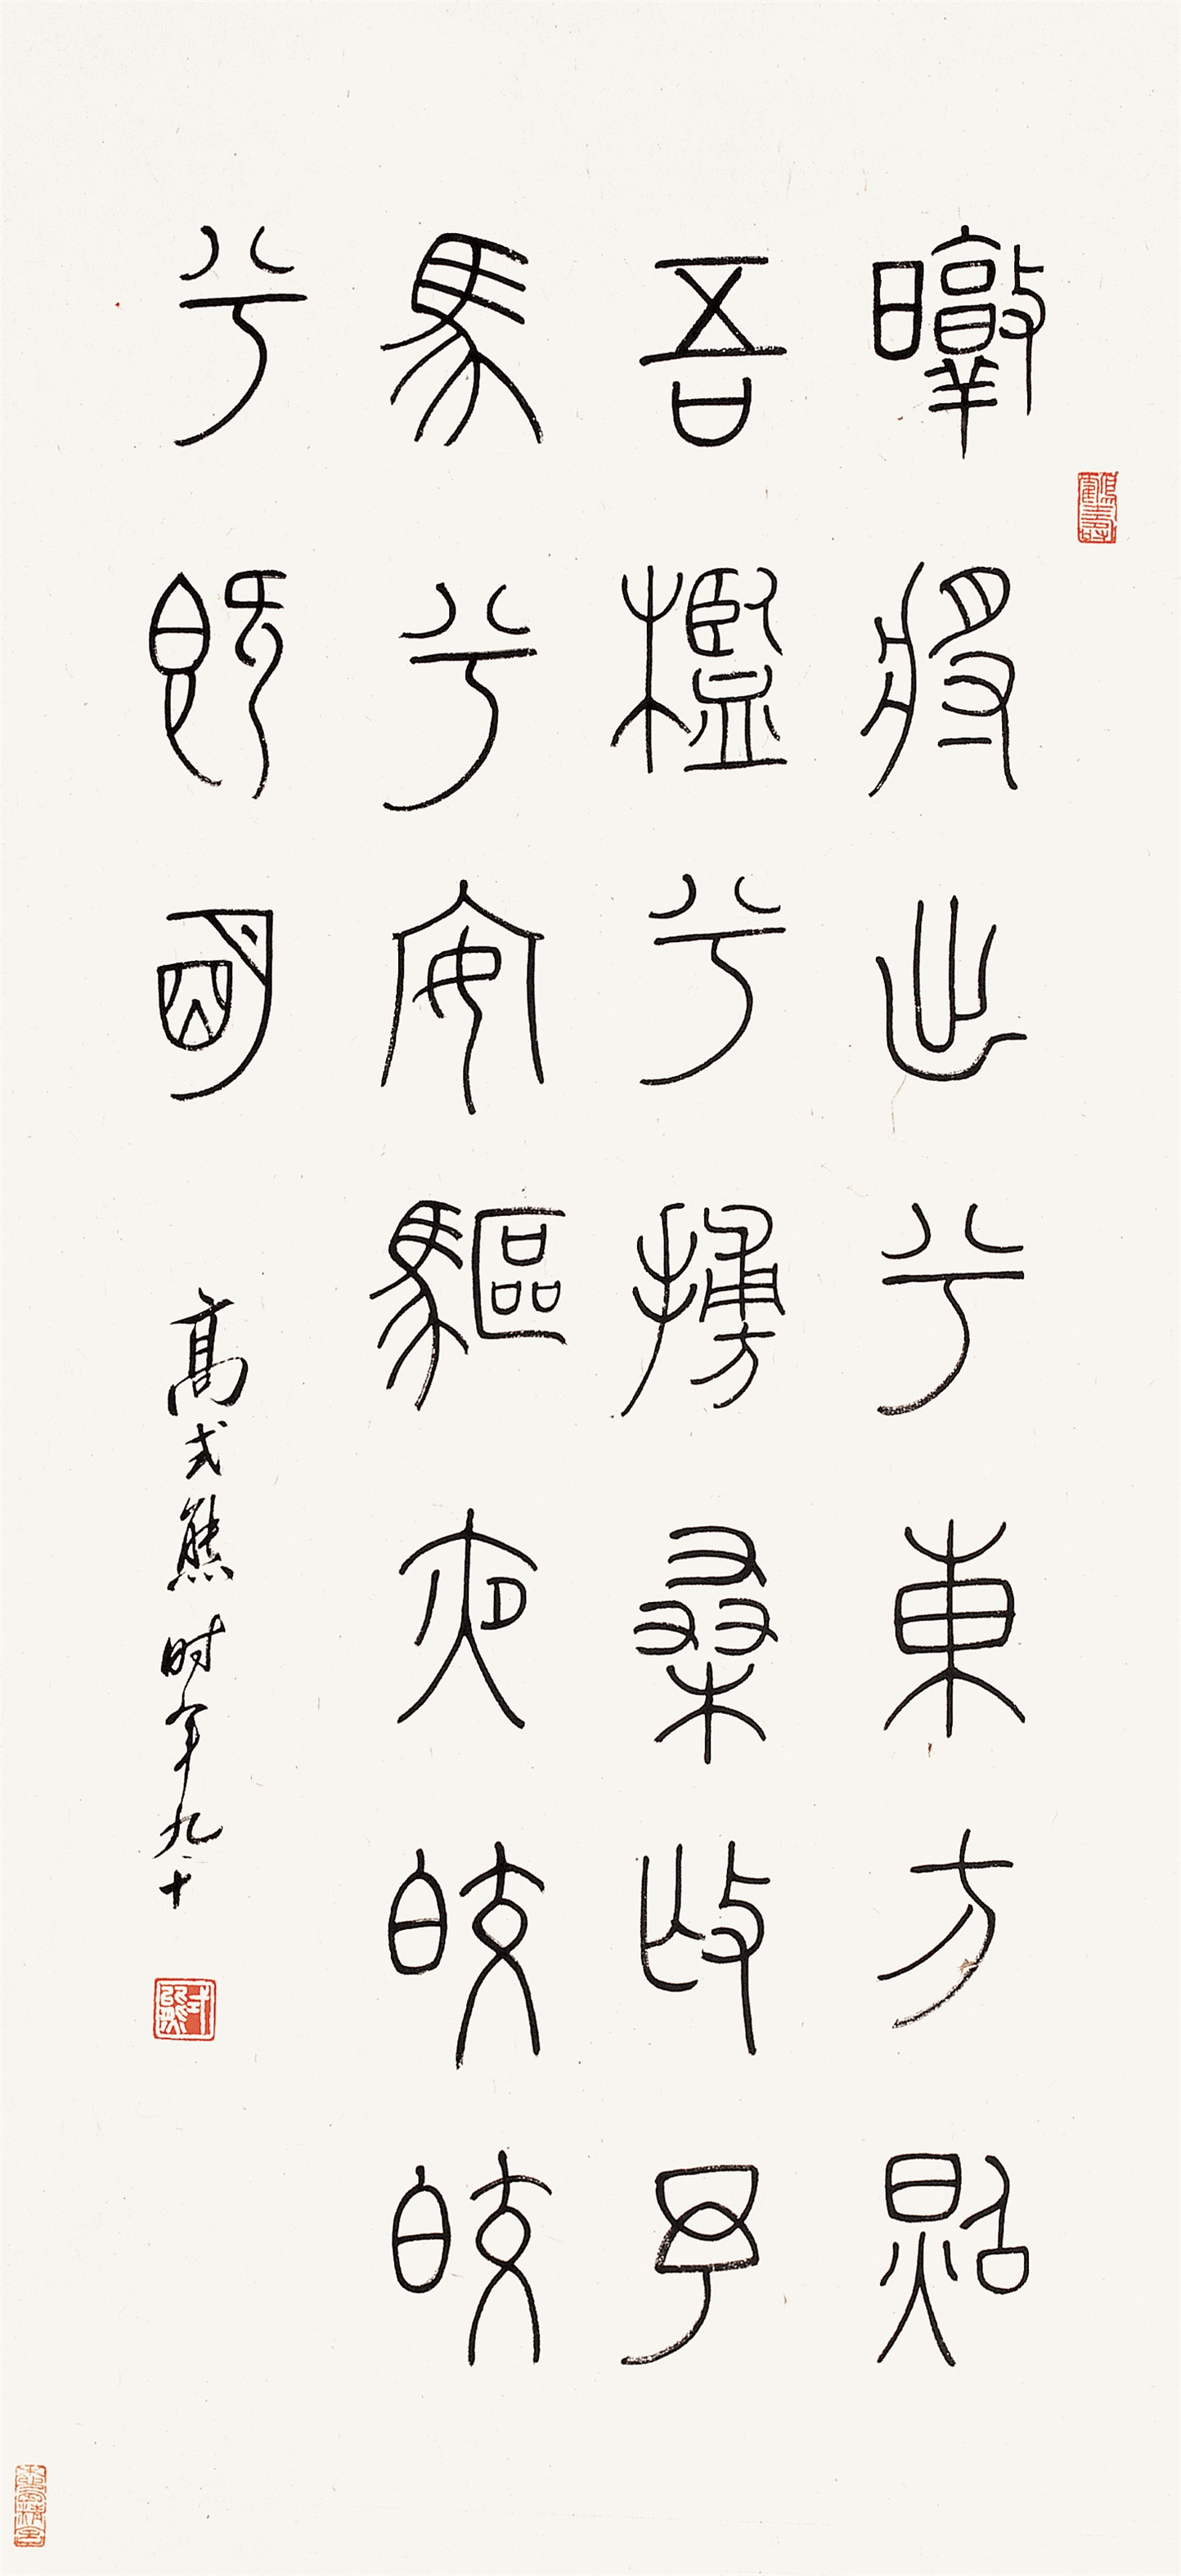 暾將出兮東方照
吾檻兮扶桑撫余
馬兮安驅夜皎皎
兮既明
高式熊时年九十